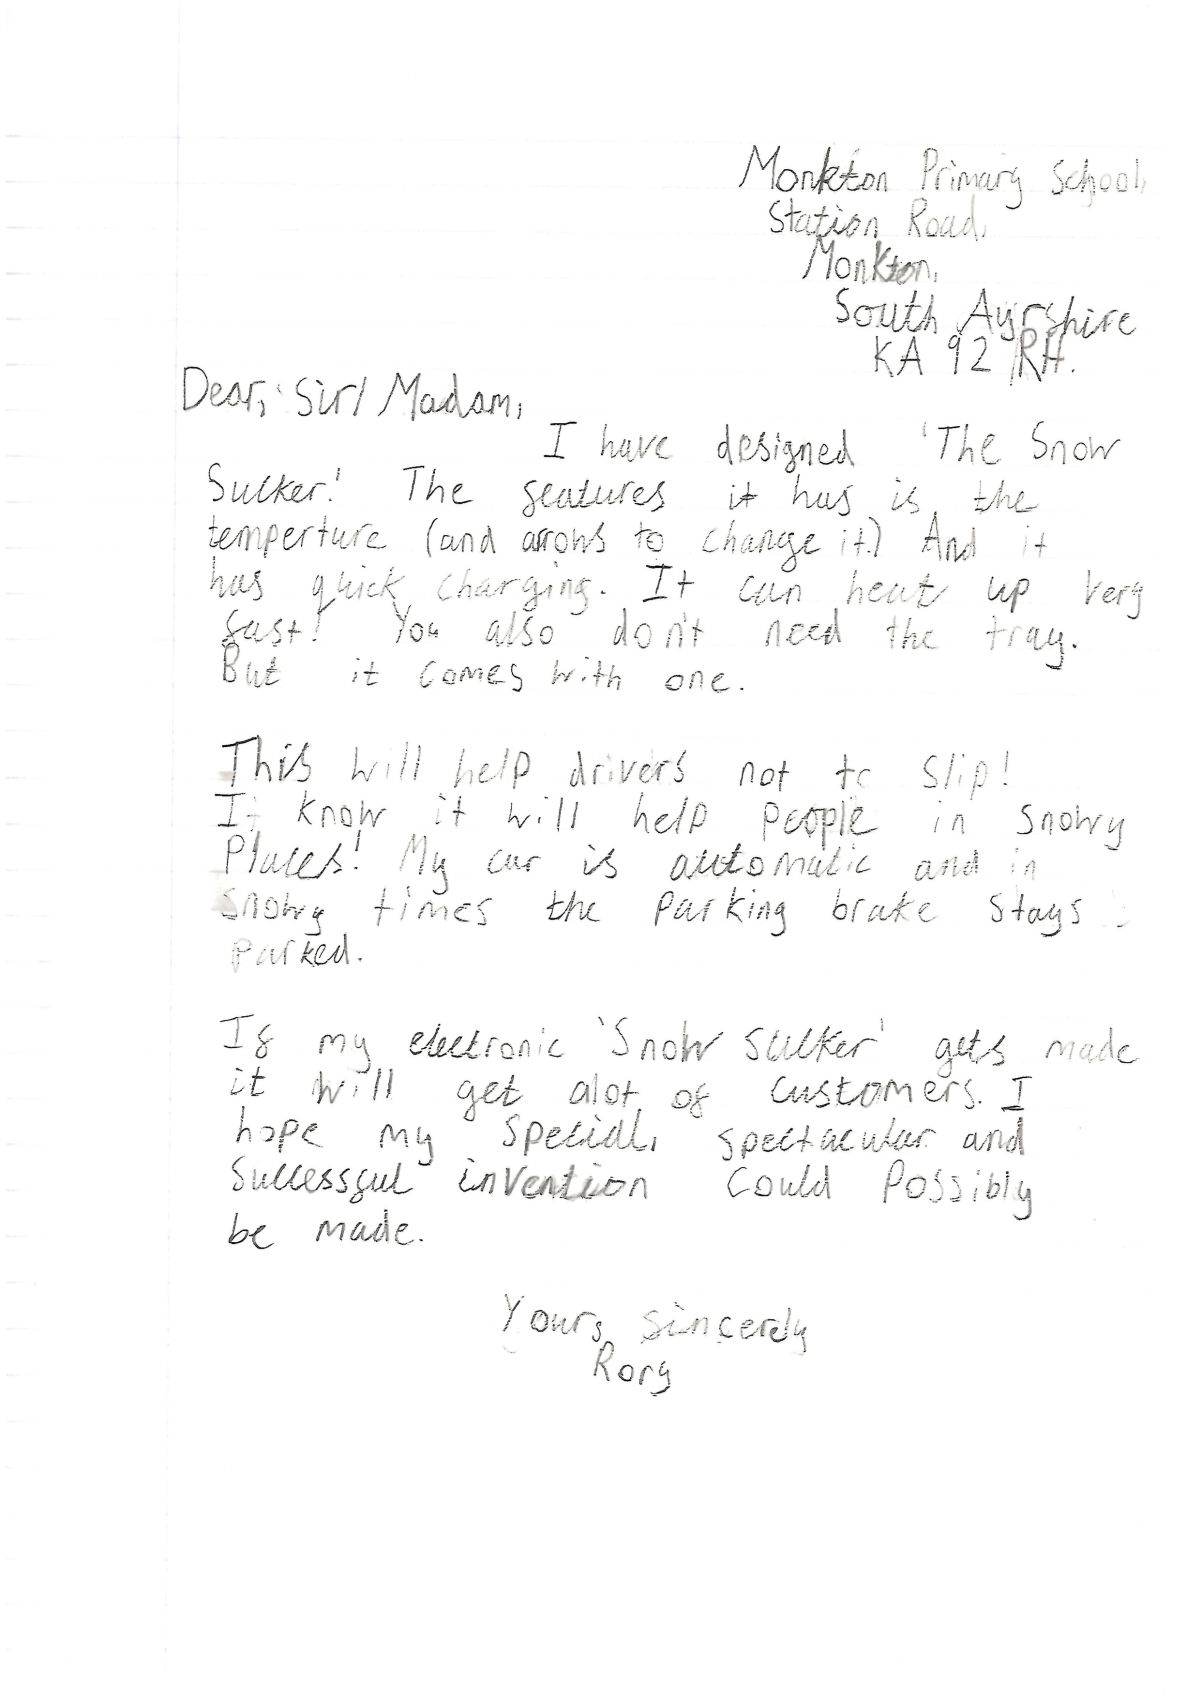 Monkton Primary School,
Station Road,
Monkton,
South Ayrshire
KA 92 RH.
Dear, Sir/ Madam,
I have designed 'The Snow
Sucker.' The features it has is the
temperture (and arrows to change it.) And it
has quick charging. It can heat up very
fast! You also don't need the tray.
But it comes with one.
This will help drivers not to slip!
I know it will help people in snowy
Places! My car is automatic and in
snowy times the parking brake stays
parked.
If my electronic 'Snow Sucker' gets made
it will get alot of customers. I
hope my special, spectacular and
successful invention could possibly
be made.
Yours sincerely
Rory